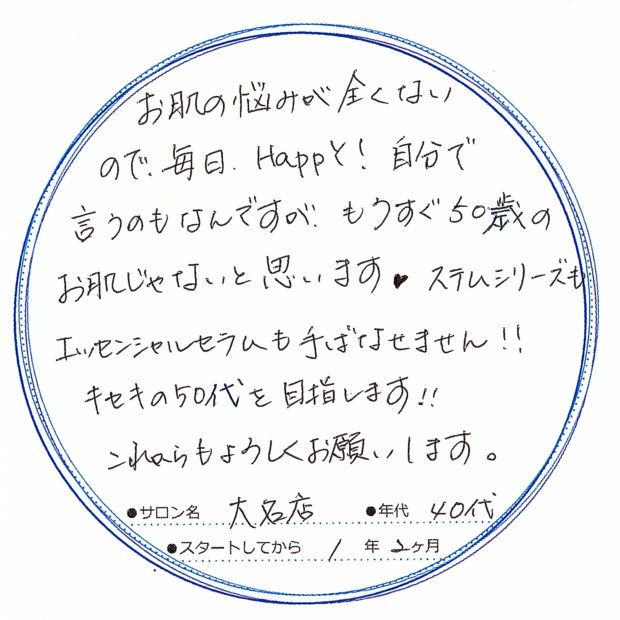 お肌の悩みが全くない
ので、毎日、Happと! 自分で
言うのもなんですが、もうすぐ50歳の
お肌じゃないと思います♥ ステムシリーズも
エッセンシャルセラムも手ばなせません!!
キセキの50代を目指します!!
これからもよろしくお願いします。
●サロン名 大名店 ●年代 40代
●スタートしてから 1年2ヶ月